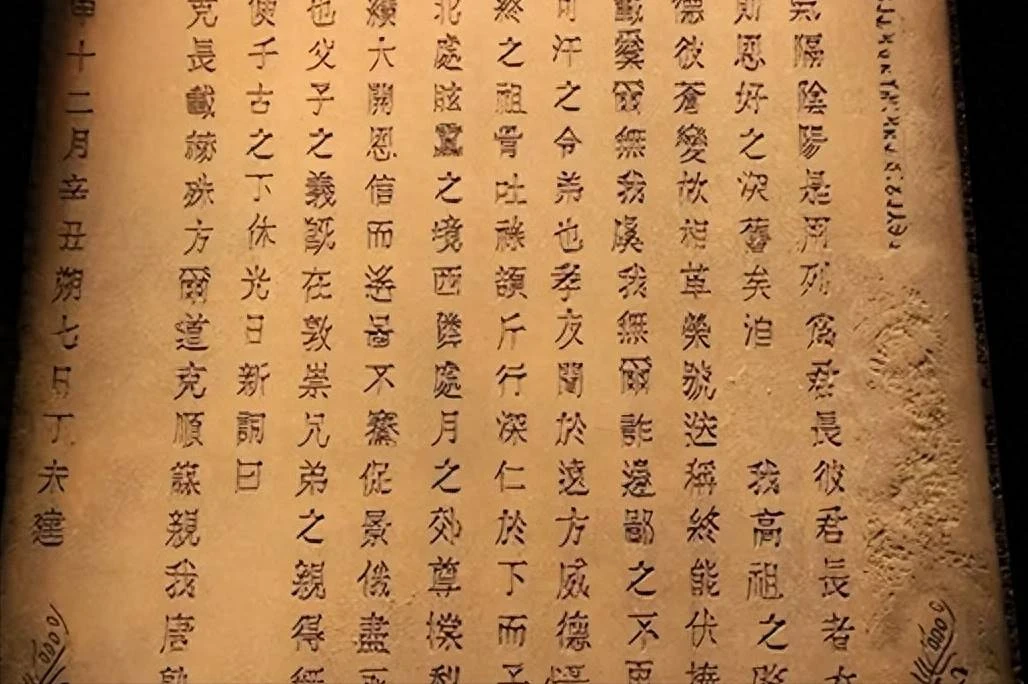 隔陰陽是用列為君長彼君長者
則恩好之深舊矣洎 我高祖之
德彼蒼變故相革榮號迭稱終能伏
載爰爾無我虞我無爾詐邊鄙之不
可汗之令弟也孝友聞於遠方威德
終之祖骨吐祿頡斤行深仁於下而子
北處眩靁之境西鄰處月之郊尊撐犁
纘大開恩信而遙圖不騫促景俄盡
也父子之義既在敦崇兄弟之親得無
使千古之下休光日新詞曰
克長載赫殊方爾道克順謀親我唐孰
申十二月辛丑朔七日丁未建